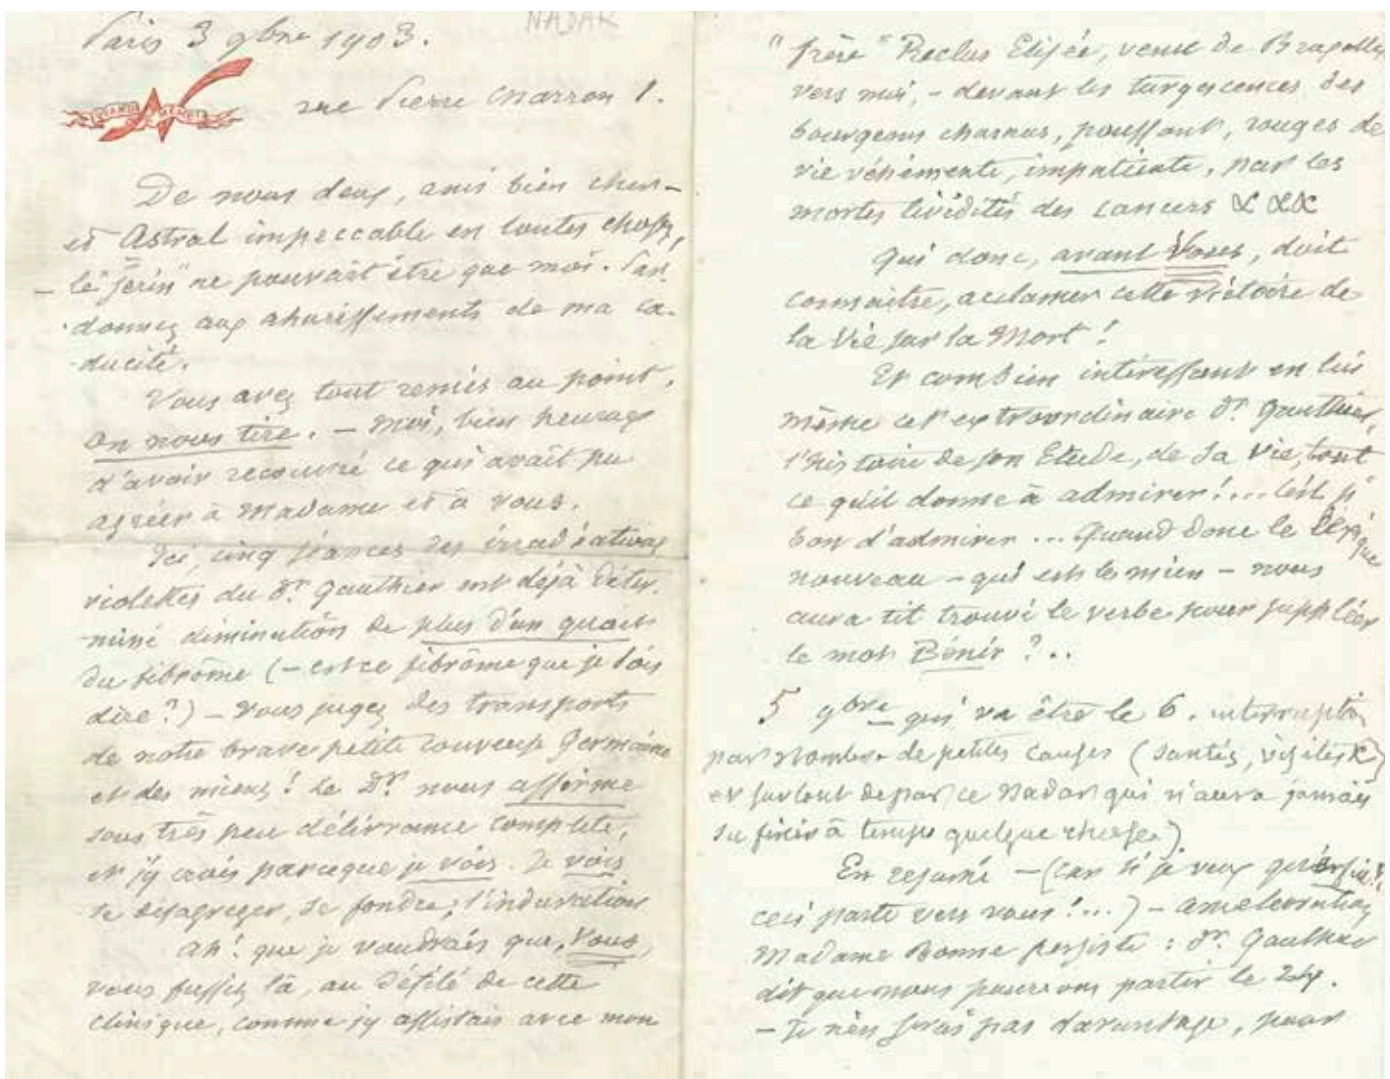 NADAR
Paris 3 9bre 1903.
QUAND MÊME
rue Pierre Charron 1.
De nous deux, ami bien cher —
et Astral impeccable en toutes choses,
— le "serin" ne pouvait être que moi. Par-
donnez aux ahurissements de ma ca-
ducité.
Vous avez tout remis au point.
On nous tire. — Moi, bien heureux
d'avoir recouvré ce qui avait pu
agréer à Madame et à vous.
Ici, cinq séances des irradiations
violettes du Dr. Gauthier ont déjà déter-
miné diminution de plus d'un quart
du fibrôme (— est-ce fibrôme que je dois
dire?) — Vous jugez des transports
de notre brave petite Germaine
et des miens! Le Dr. nous affirme
sous très peu délivrance complète,
et j'y crois parceque je vois. Je vois
se désagréger, se fondre, l'induration
Ah! que je voudrais que, Vous,
vous fussiez là, au défilé de cette
clinique, comme j'y assistais avec mon
"frère" Reclus Elisée, venu de Bruxelles
vers moi, — devant les turgescences des
bourgeons charnus, poussant, rouges de
vie véhémente, impatiente, par les
mortes lividités des cancers &&&
Qui donc, avant Vous, doit
connaître, acclamer cette victoire de
la Vie sur la Mort!
Et combien intéressant en lui
même cet extraordinaire Dr. Gauthier,
l'histoire de son Etude, de sa vie, tout
ce qu'il donne à admirer!... C'est si
bon d'admirer... Quand donc le lexique
nouveau — qui est le mien — nous
aura-t-il trouvé le verbe pour suppléer
le mot Bénir?..
5 9bre — qui va être le 6. interruption
par nombre de petites causes (santés, visites &)
et surtout de par ce Nadar qui n'aura jamais
su finir à temps quelque chose).
En résumé — (car si je veux qu'enfin
ceci parte vers vous!...) — amélioration
Madame Bonne persiste: Dr. Gauthier
dit que nous pourrons partir le 24.
— Je n'en serai pas davantage, pour